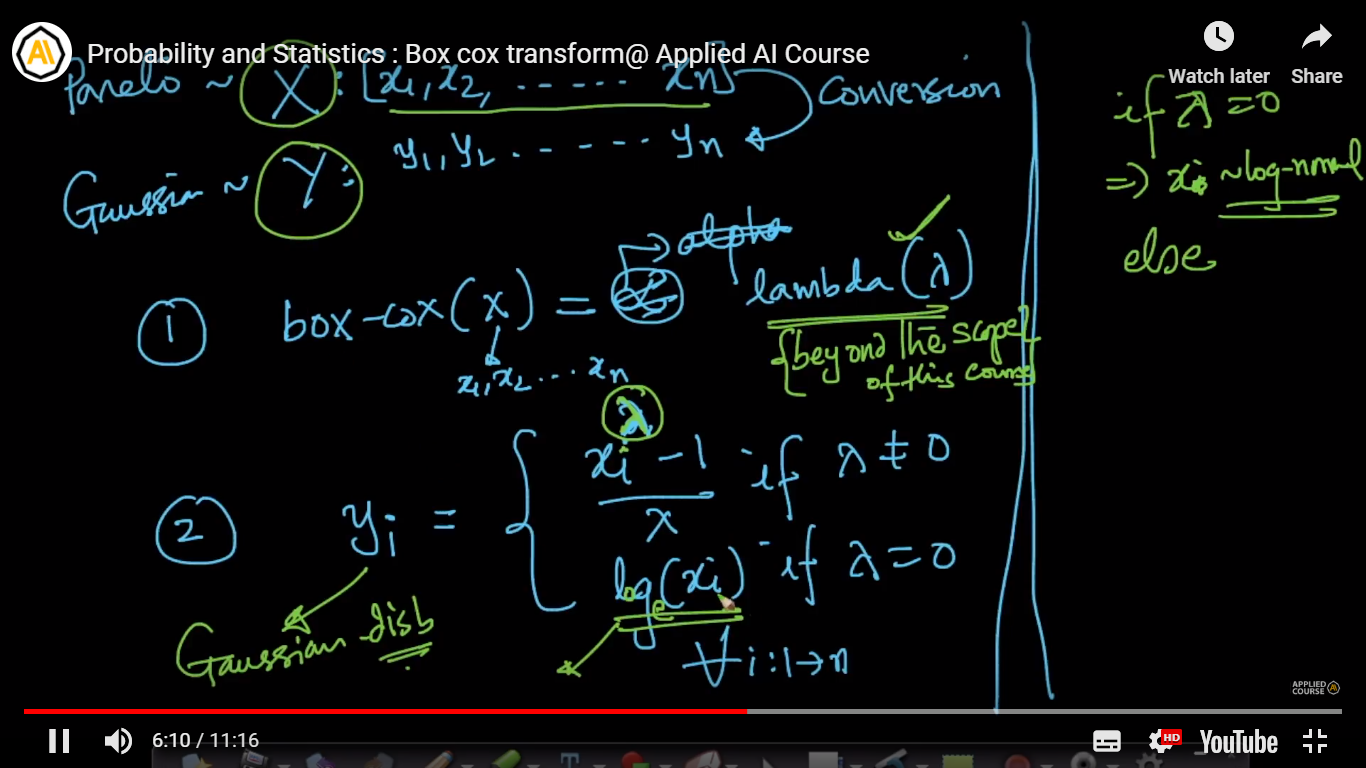 Probability and Statistics : Box cox transform@ Applied AI Course
Watch later Share
Pareto ~ X : [x₁, x₂, ...... xn] conversion
y₁, y₂ ...... yn
Gaussian ~ Y :
① box-cox(x) = alpha lambda (λ)
x₁, x₂ ... xn
{beyond the scope
of this course
② yᵢ = { (xᵢ^λ − 1)/λ if λ ≠ 0
logₑ(xᵢ) if λ = 0
∀ i : 1 → n
Gaussian disb
if λ = 0
⇒ xᵢ ~ log-normal
else
APPLIED
COURSE
6:10 / 11:16
HD
YouTube